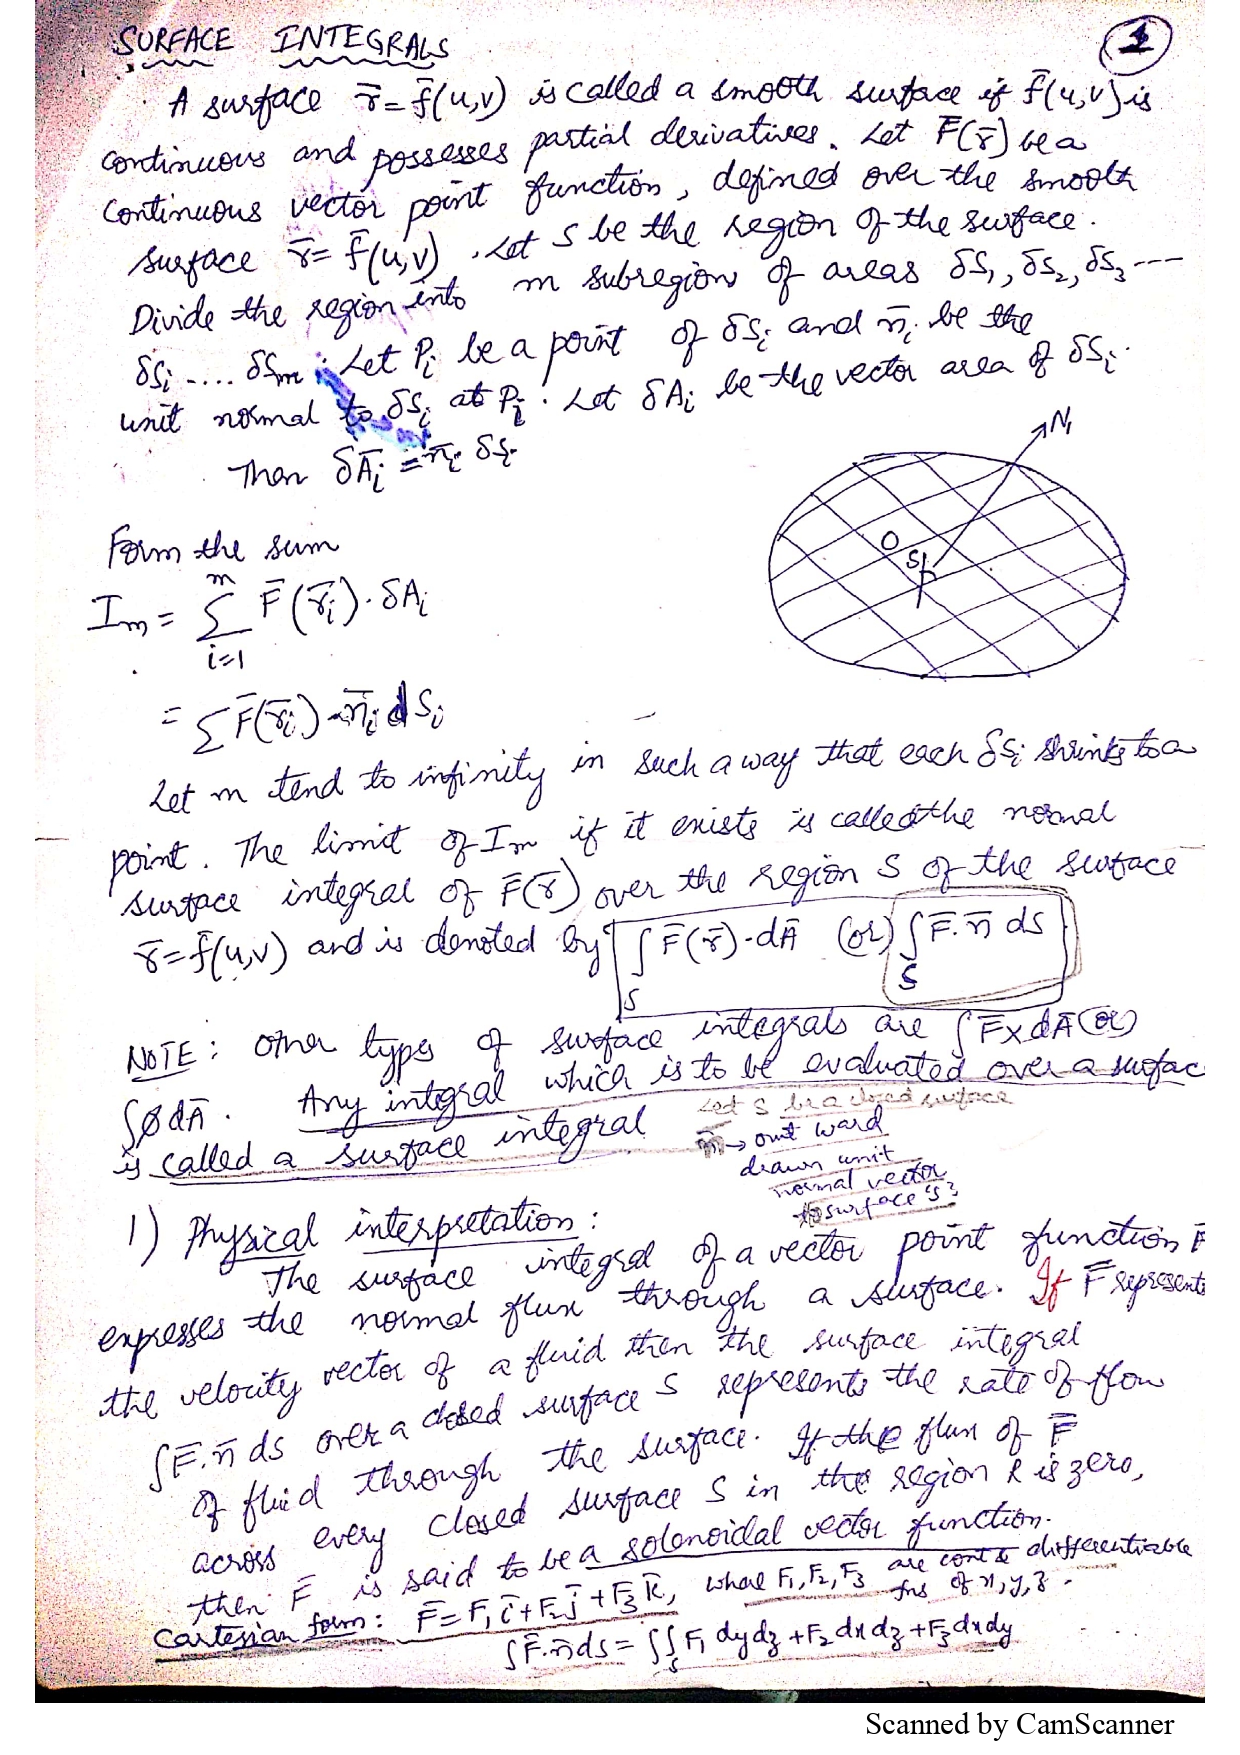 SURFACE INTEGRALS
1
A surface r̄ = f̄(u,v) is called a smooth surface if f̄(u,v) is
continuous and possesses partial derivatives. Let F̄(r̄) be a
continuous vector point function, defined over the smooth
surface r̄ = f̄(u,v). Let S be the region of the surface.
Divide the region into m subregion of areas δS₁, δS₂, δS₃ ---
δSᵢ .... δSₘ. Let Pᵢ be a point of δSᵢ and n̄ᵢ be the
unit normal to δSᵢ at Pᵢ. Let δAᵢ be the vector area of δSᵢ.
Then δĀᵢ = n̄ᵢ δSᵢ
N₁
O
S
P
Form the sum
Iₘ = ∑ᵢ₌₁ᵐ F̄(r̄ᵢ). δAᵢ
= ∑ F̄(r̄ᵢ) . n̄ᵢ dSᵢ
Let m tend to infinity in such a way that each δSᵢ shrinks to a
point. The limit of Iₘ if it exists is called the normal
surface integral of F̄(r̄) over the region S of the surface
r̄ = f̄(u,v) and is denoted by ∫_S F̄(r̄).dĀ (or) ∫_S F̄.n̄ ds
NOTE: other types of surface integrals are ∫F̄×dĀ (or)
∫ødĀ. Any integral which is to be evaluated over a surfac
is called a surface integral
Let S be a closed surface
n̄ → out ward
drawn unit
normal vector
to surface 's'
1) Physical interpretation:
The surface integral of a vector point function F̄
expresses the normal flux through a surface. If F̄ represents
the velocity vector of a fluid then the surface integral
∫F̄.n̄ ds over a closed surface S represents the rate of flow
of fluid through the surface. If the flux of F̄
across every closed surface S in the region R is zero,
then F̄ is said to be a solenoidal vector function.
Cartesian form: F̄ = F₁ī + F₂j̄ + F₃k̄, where F₁, F₂, F₃ are cont & differentiable
fns of x, y, z.
∫F̄.n̄ds = ∫∫_S F₁ dydz + F₂ dxdz + F₃ dxdy
Scanned by CamScanner